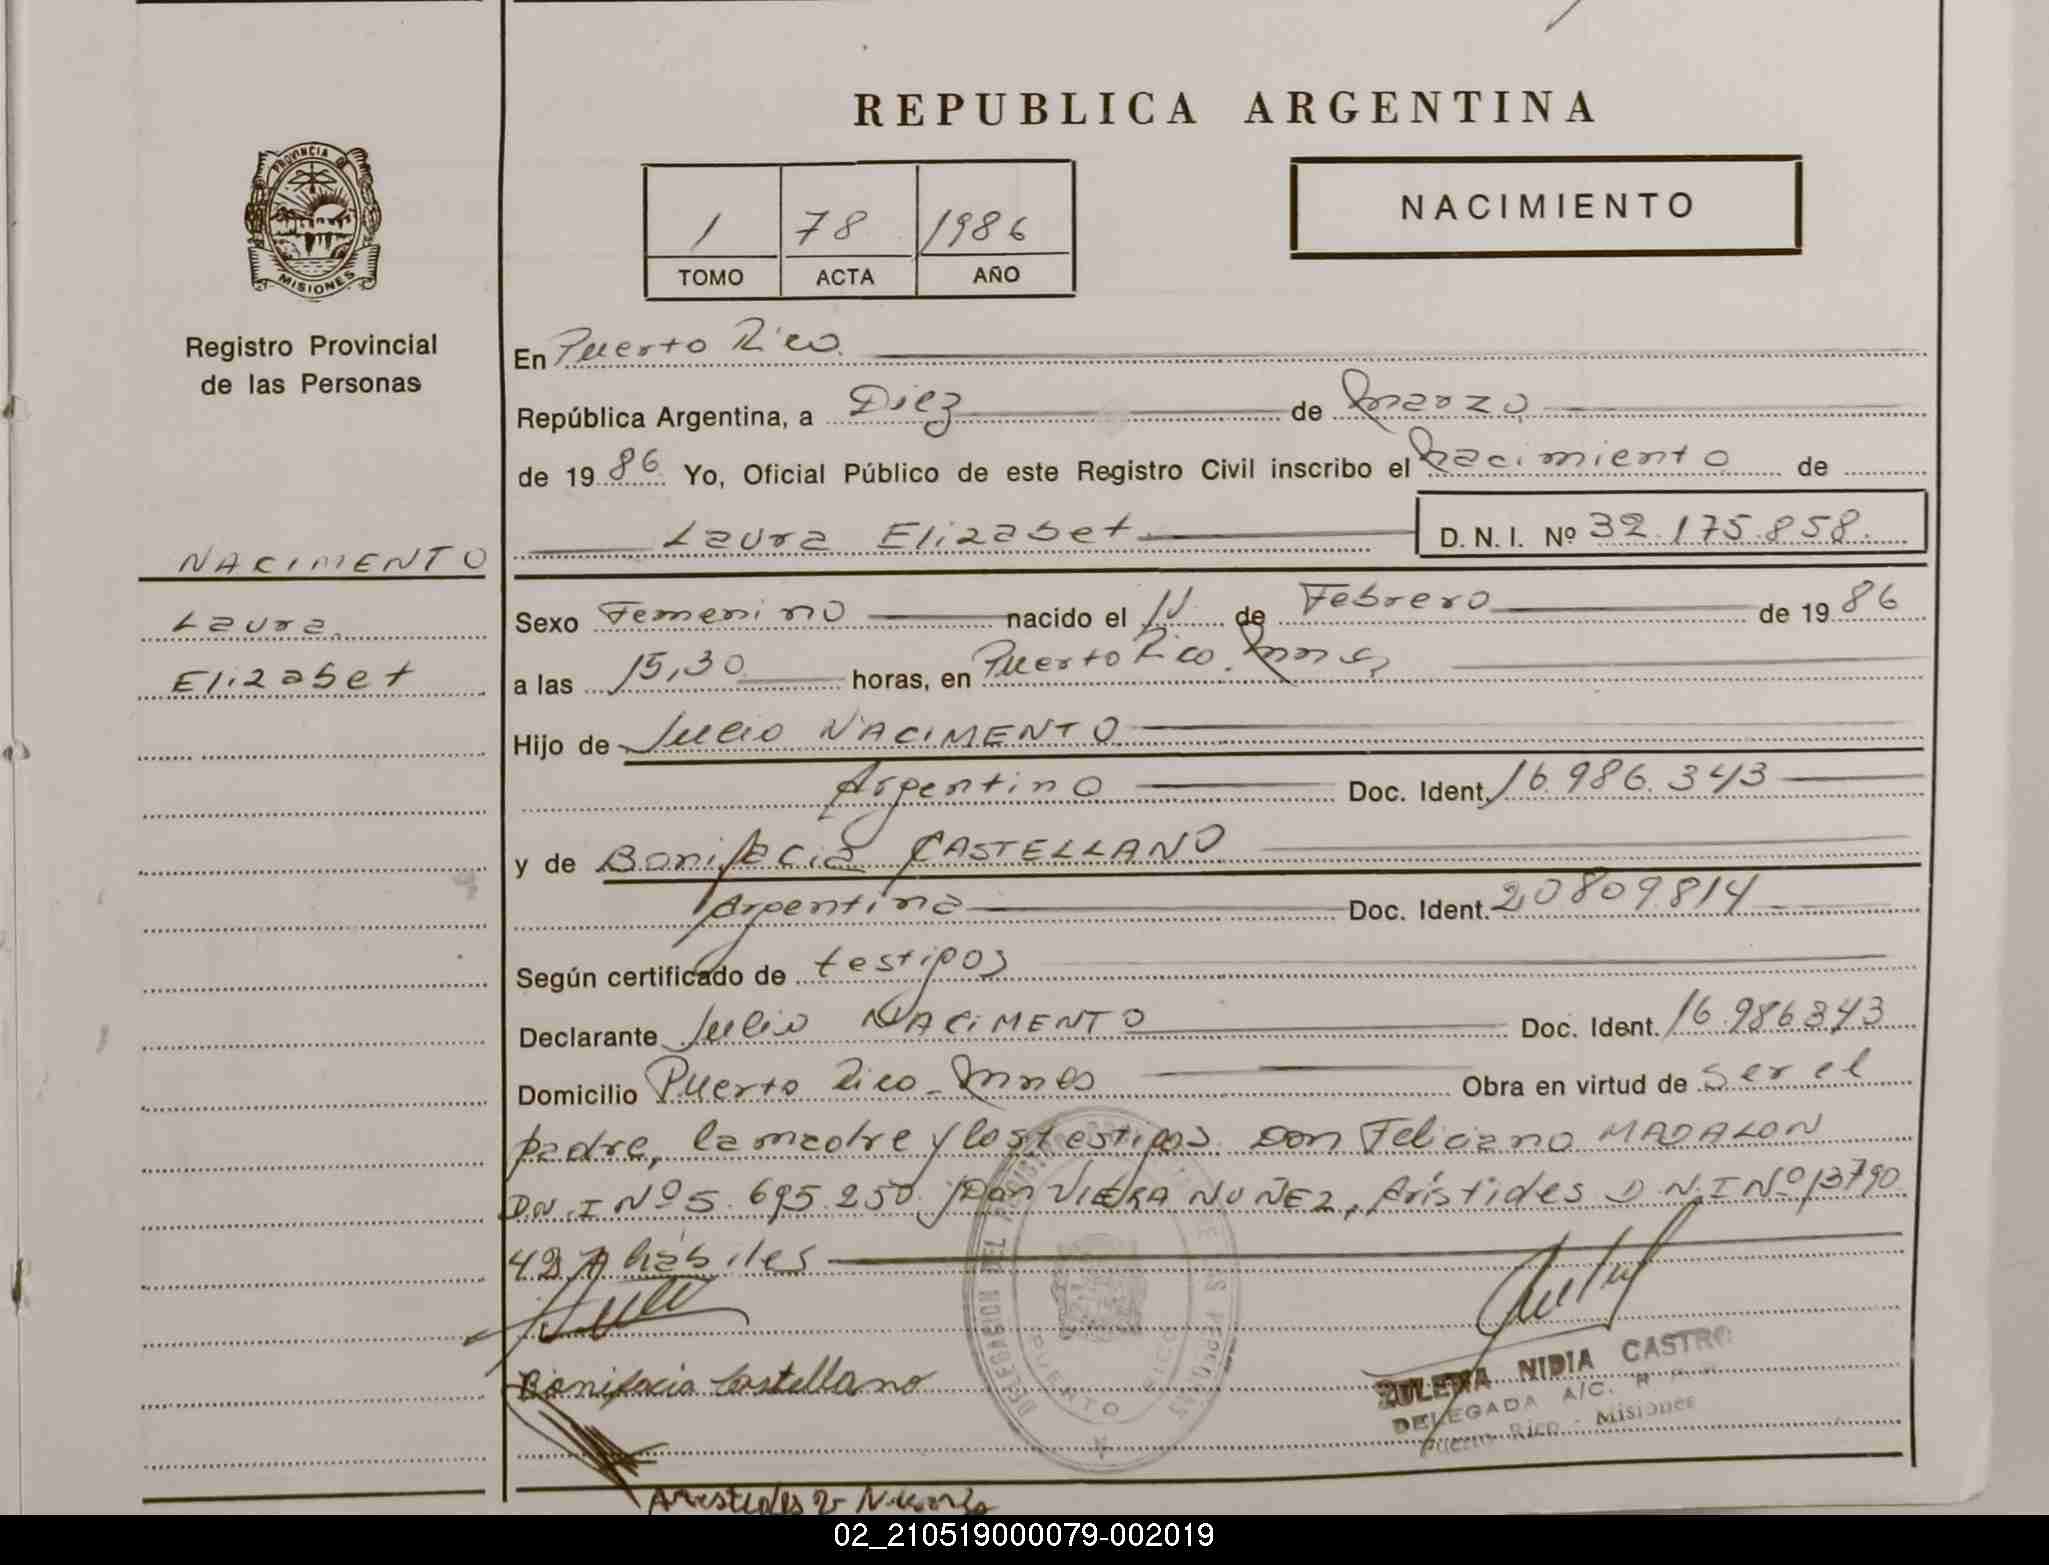 REPUBLICA ARGENTINA
PROVINCIA DE
MISIONES
Registro Provincial
de las Personas
1 78 1986
TOMO ACTA AÑO
NACIMIENTO
En Puerto Rico.
República Argentina, a Diez de marzo
de 19 86 Yo, Oficial Público de este Registro Civil inscribo el Nacimiento de
Laura Elizabet D. N. I. Nº 32.175.858.
NACIMENTO
Laura
Elizabet
Sexo Femenino nacido el 11 de Febrero de 19 86
a las 15,30 horas, en Puerto Rico. Mnes
Hijo de Julio NACIMENTO
Argentino Doc. Ident. 16.986.343
y de Bonifacia CASTELLANO
Argentina Doc. Ident. 20809814
Según certificado de testigos
Declarante Julio NACIMENTO Doc. Ident. 16.986343
Domicilio Puerto Rico - Mnes Obra en virtud de ser el
padre, la madre y los testigos Don Feliciano MADALON
D.N.I Nº 5.695.250 y Don VIERA NUÑEZ, Arístides D.N.I Nº 13790
427 hábiles
Bonifacia Castellano
DELEGACION DEL REGISTRO PROVINCIAL DE LAS PERSONAS
PUERTO RICO
ZULEMA NIDIA CASTRO
DELEGADA A/C. R. P. P.
Puerto Rico - Misiones
02_210519000079-002019